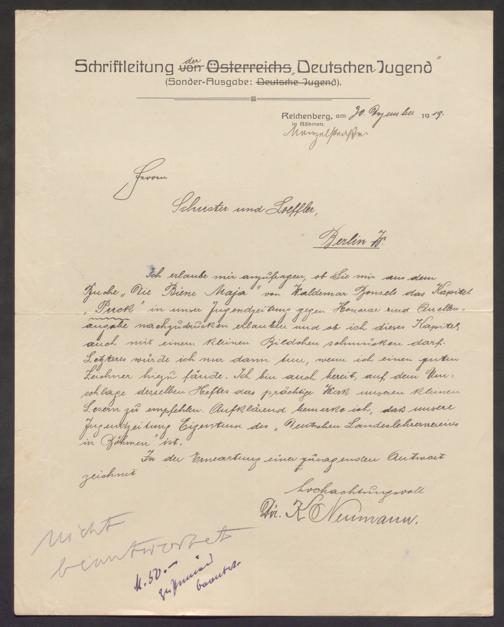 Schriftleitung der von Österreichs „Deutschen Jugend"
(Sonder-Ausgabe: Deutsche Jugend).
Reichenberg, am 30. Dezember 1919.
in Böhmen.
Herren
Schuster und Loeffler,
Berlin W
Ich erlaube mir anzufragen, ob Sie mir aus dem
Buche „Die Biene Maja" von Waldemar Bonsels das Kapitel
„Puck" in unserer Jugendzeitung gegen Honorar und Quellen-
angabe nachzudrucken erlauben und ob ich dieses Kapitel
auch mit einem kleinen Bildchen schmücken darf.
Letzteres würde ich nur dann tun, wenn ich einen guten
Zeichner hiezu fände. Ich bin auch bereit, auf dem Um-
schlage desselben Heftes das prächtige Werk unseren kleinen
Lesern zu empfehlen. Aufklärend bemerke ich, daß unsere
Jugendzeitung Eigentum des „Deutschen Landeslehrervereines
in Böhmen" ist.
In der Erwartung einer zusagenden Antwort
zeichnet
hochachtungsvoll
Dir. K Neumann.
nicht
beantwortet
M. 50.-